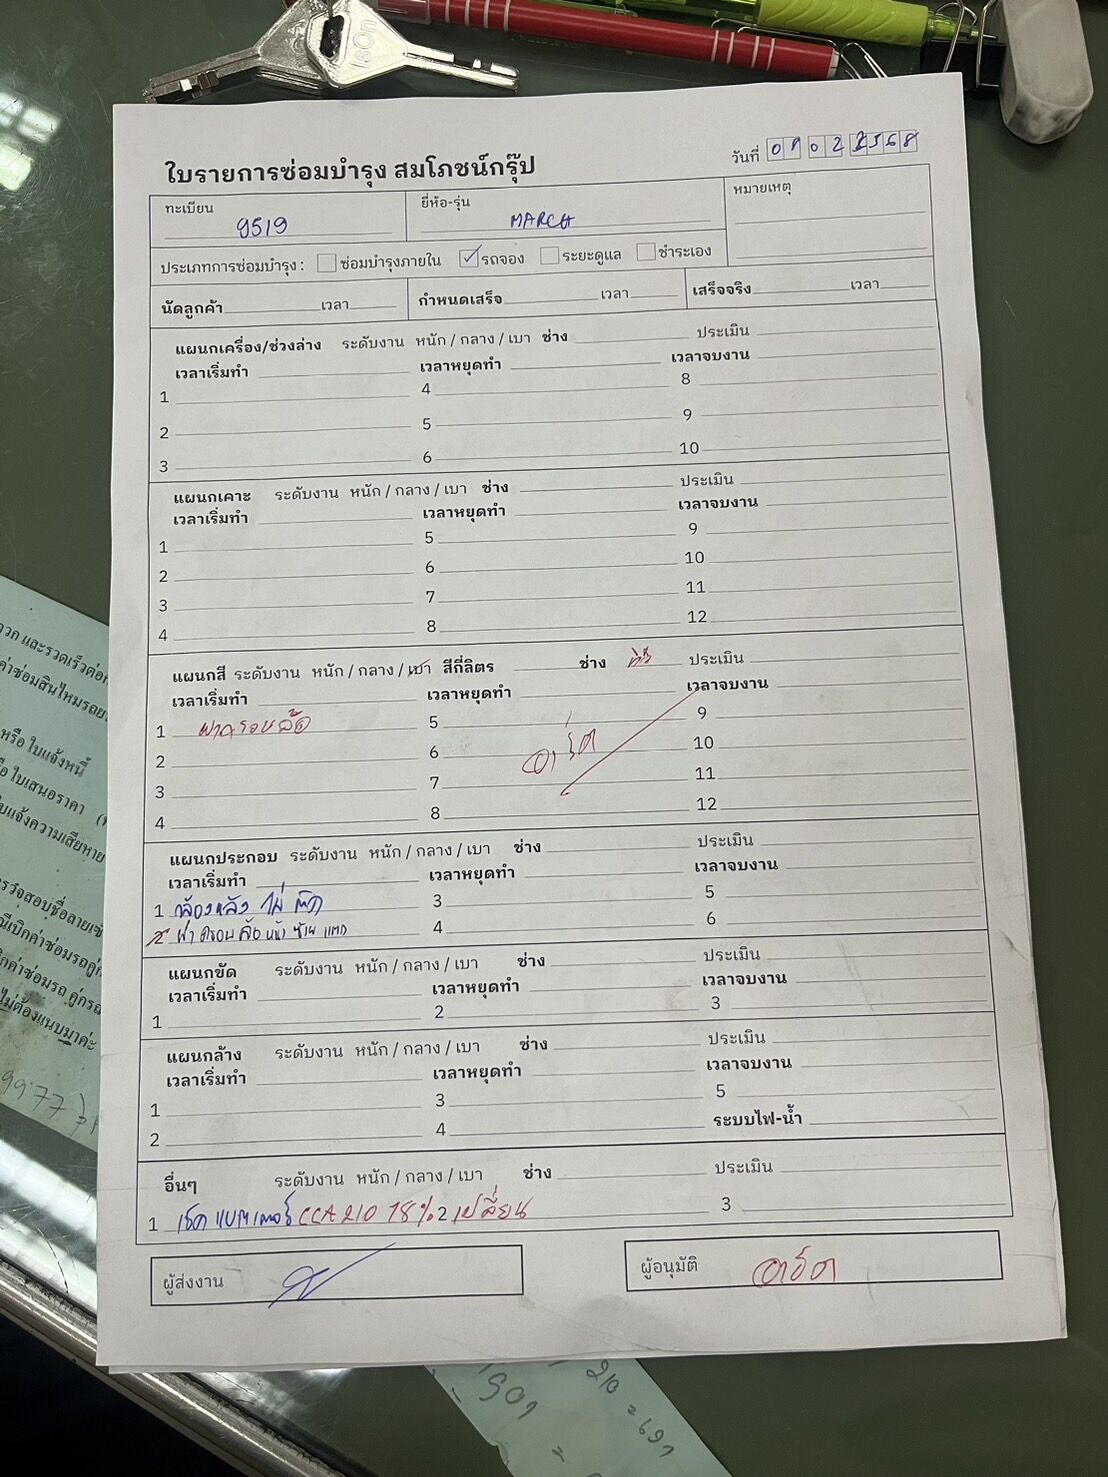 ใบรายการซ่อมบำรุง สมโภชน์กรุ๊ป
วันที่
ทะเบียน 9519 ยี่ห้อ-รุ่น MARCH หมายเหตุ
ประเภทการซ่อมบำรุง : ซ่อมบำรุงภายใน ✓ รถจอง ระยะดูแล ชำระเอง
นัดลูกค้า เวลา กำหนดเสร็จ เวลา เสร็จจริง เวลา
แผนกเครื่อง/ช่วงล่าง ระดับงาน หนัก / กลาง / เบา ช่าง ประเมิน
เวลาเริ่มทำ เวลาหยุดทำ เวลาจบงาน
1 4 8
2 5 9
3 6 10
แผนกเคาะ ระดับงาน หนัก / กลาง / เบา ช่าง ประเมิน
เวลาเริ่มทำ เวลาหยุดทำ เวลาจบงาน
1 5 9
2 6 10
3 7 11
4 8 12
แผนกสี ระดับงาน หนัก / กลาง / เบา สีกี่ลิตร ช่าง ประเมิน
เวลาเริ่มทำ เวลาหยุดทำ เวลาจบงาน
1 ฝาครอบล้อ 5 9
2 6 10
3 7 11
4 8 12
แผนกประกอบ ระดับงาน หนัก / กลาง / เบา ช่าง ประเมิน
เวลาเริ่มทำ เวลาหยุดทำ เวลาจบงาน
1 กล้องหลัง ไม่ ติด 3 5
2 ฝา ครอบ ล้อ หน้า ซ้าย แตก 4 6
แผนกขัด ระดับงาน หนัก / กลาง / เบา ช่าง ประเมิน
เวลาเริ่มทำ เวลาหยุดทำ เวลาจบงาน
1 2 3
แผนกล้าง ระดับงาน หนัก / กลาง / เบา ช่าง ประเมิน
เวลาเริ่มทำ เวลาหยุดทำ เวลาจบงาน
1 3 5
2 4 ระบบไฟ-น้ำ
อื่นๆ ระดับงาน หนัก / กลาง / เบา ช่าง ประเมิน
1 เช็ค แบตเตอรี่ CCA 210 78% 2 เปลี่ยน 3
ผู้ส่งงาน ผู้อนุมัติ
หรือ ใบแจ้งหนี้
ไม่ต้องแนบมาค่ะ